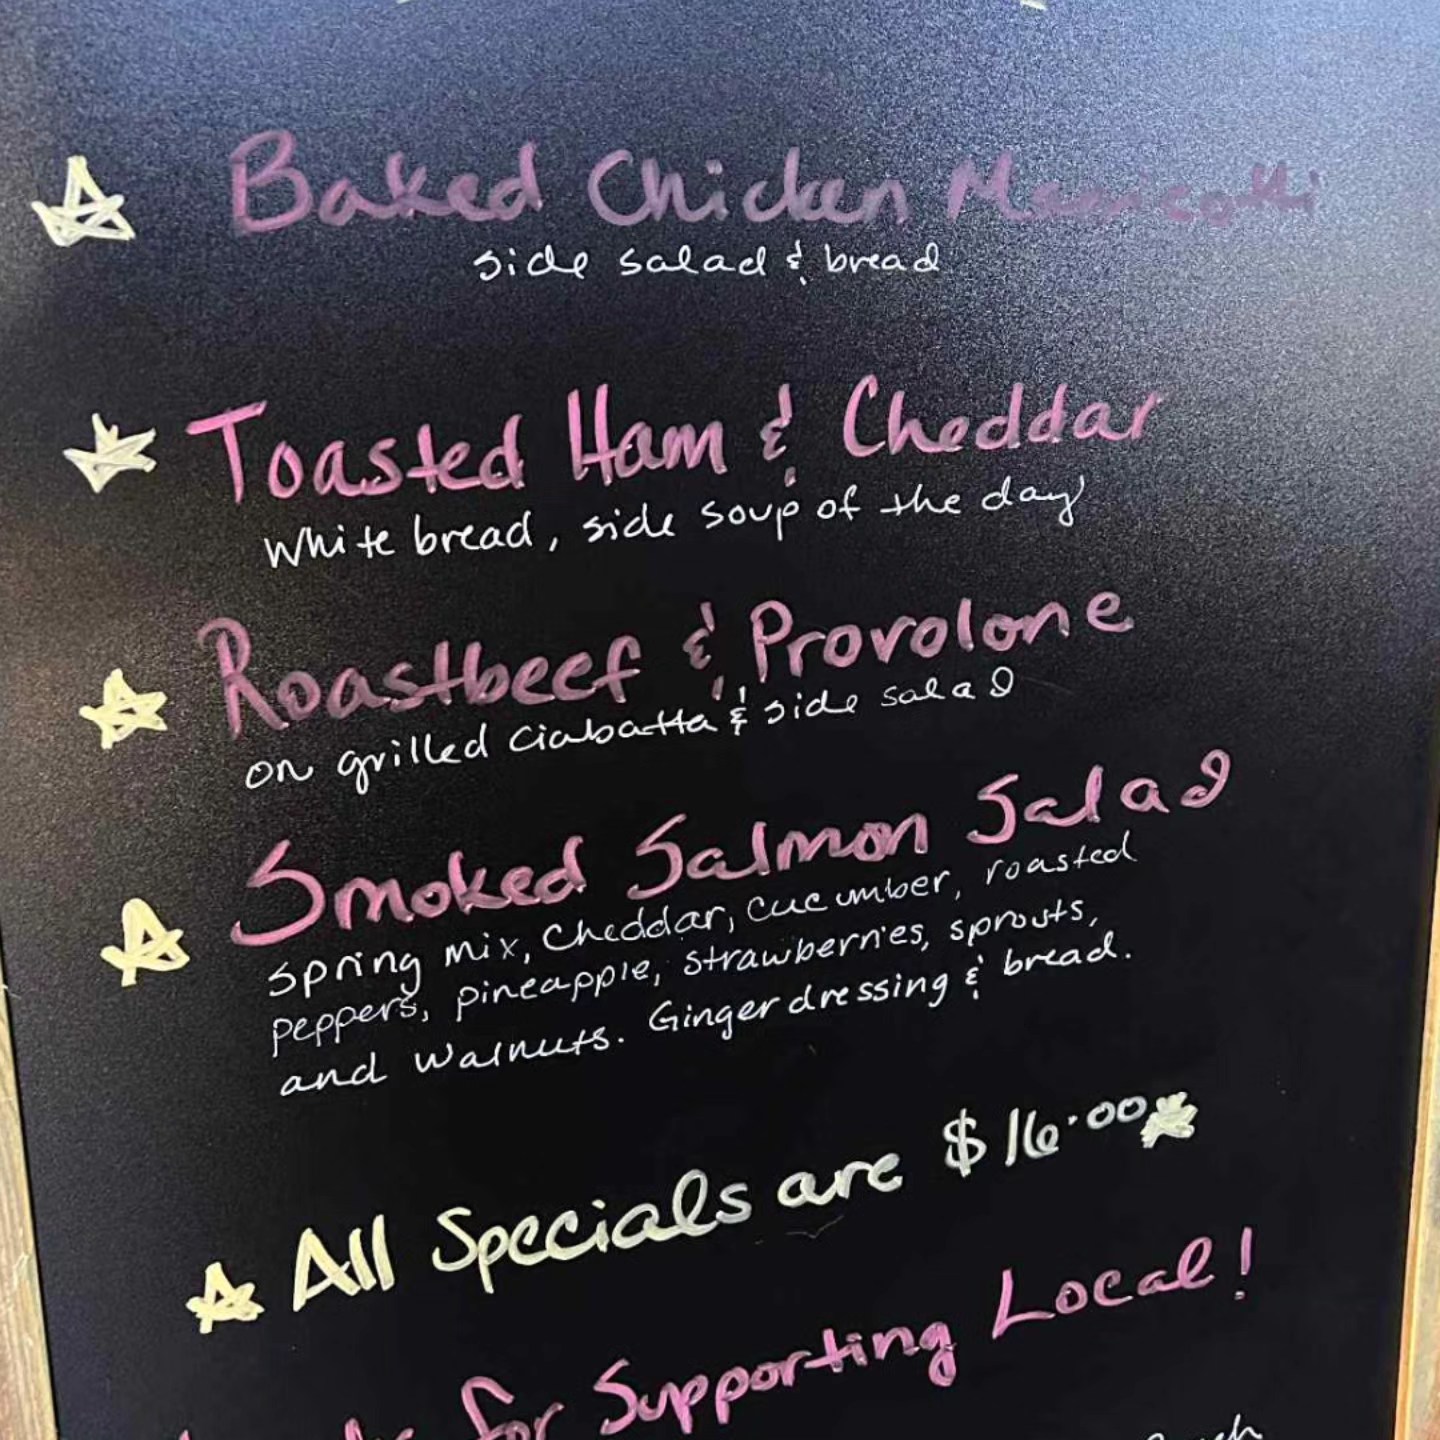 Baked Chicken Manicotti
side salad & bread
Toasted Ham & Cheddar
White bread, side soup of the day
Roastbeef & Provolone
on grilled Ciabatta & side salad
Smoked Salmon Salad
Spring mix, Cheddar, cucumber, roasted
peppers, pineapple, strawberries, sprouts,
and walnuts. Ginger dressing & bread.
All Specials are $16.00
for Supporting Local!